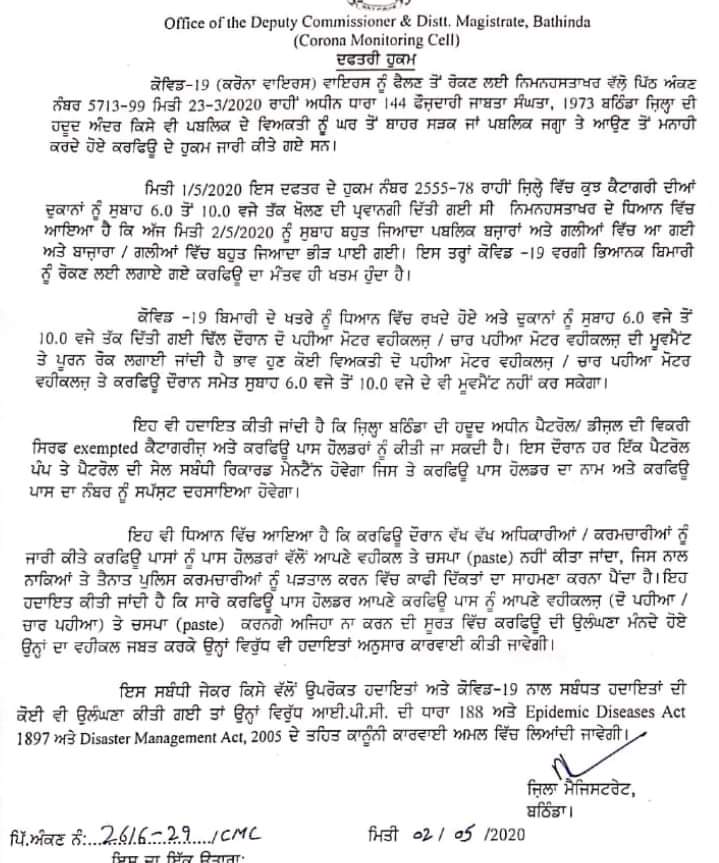 Office of the Deputy Commissioner & Distt. Magistrate, Bathinda
(Corona Monitoring Cell)
ਦਫਤਰੀ ਹੁਕਮ
ਕੋਵਿਡ-19 (ਕਰੋਨਾ ਵਾਇਰਸ) ਵਾਇਰਸ ਨੂੰ ਫੈਲਣ ਤੋਂ ਰੋਕਣ ਲਈ ਨਿਮਨਹਸਤਾਖਰ ਵੱਲੋ ਪਿੱਠ ਅੰਕਣ
ਨੰਬਰ 5713-99 ਮਿਤੀ 23-3/2020 ਰਾਹੀਂ ਅਧੀਨ ਧਾਰਾ 144 ਫੌਜਦਾਰੀ ਜਾਬਤਾ ਸੰਘਤਾ, 1973 ਬਠਿੰਡਾ ਜ਼ਿਲ੍ਹਾ ਦੀ
ਹਦੂਦ ਅੰਦਰ ਕਿਸੇ ਵੀ ਪਬਲਿਕ ਦੇ ਵਿਅਕਤੀ ਨੂੰ ਘਰ ਤੋਂ ਬਾਹਰ ਸੜਕ ਜਾਂ ਪਬਲਿਕ ਜਗ੍ਹਾ ਤੇ ਆਉਣ ਤੋਂ ਮਨਾਹੀ
ਕਰਦੇ ਹੋਏ ਕਰਫਿਊ ਦੇ ਹੁਕਮ ਜਾਰੀ ਕੀਤੇ ਗਏ ਸਨ।
ਮਿਤੀ 1/5/2020 ਇਸ ਦਫਤਰ ਦੇ ਹੁਕਮ ਨੰਬਰ 2555-78 ਰਾਹੀਂ ਜ਼ਿਲ੍ਹੇ ਵਿੱਚ ਕੁਝ ਕੈਟਾਗਰੀ ਦੀਆਂ
ਦੁਕਾਨਾਂ ਨੂੰ ਸੁਬਾਹ 6.0 ਤੋਂ 10.0 ਵਜੇ ਤੱਕ ਖੋਲਣ ਦੀ ਪ੍ਰਵਾਨਗੀ ਦਿੱਤੀ ਗਈ ਸੀ ਨਿਮਨਹਸਤਾਖਰ ਦੇ ਧਿਆਨ ਵਿੱਚ
ਆਇਆ ਹੈ ਕਿ ਅੱਜ ਮਿਤੀ 2/5/2020 ਨੂੰ ਸੁਬਾਹ ਬਹੁਤ ਜਿਆਦਾ ਪਬਲਿਕ ਬਜ਼ਾਰਾਂ ਅਤੇ ਗਲੀਆਂ ਵਿੱਚ ਆ ਗਈ
ਅਤੇ ਬਾਜ਼ਾਰਾ / ਗਲੀਆਂ ਵਿੱਚ ਬਹੁਤ ਜਿਆਦਾ ਭੀੜ ਪਾਈ ਗਈ। ਇਸ ਤਰ੍ਹਾਂ ਕੋਵਿਡ -19 ਵਰਗੀ ਭਿਆਨਕ ਬਿਮਾਰੀ
ਨੂੰ ਰੋਕਣ ਲਈ ਲਗਾਏ ਗਏ ਕਰਫਿਊ ਦਾ ਮੰਤਵ ਹੀ ਖਤਮ ਹੁੰਦਾ ਹੈ।
ਕੋਵਿਡ -19 ਬਿਮਾਰੀ ਦੇ ਖਤਰੇ ਨੂੰ ਧਿਆਨ ਵਿੱਚ ਰਖਦੇ ਹੋਏ ਅਤੇ ਦੁਕਾਨਾਂ ਨੂੰ ਸੁਬਾਹ 6.0 ਵਜੇ ਤੋਂ
10.0 ਵਜੇ ਤੱਕ ਦਿੱਤੀ ਗਈ ਢਿੱਲ ਦੌਰਾਨ ਦੋ ਪਹੀਆ ਮੋਟਰ ਵਹੀਕਲਜ਼ / ਚਾਰ ਪਹੀਆ ਮੋਟਰ ਵਹੀਕਲਜ਼ ਦੀ ਮੂਵਮੈਂਟ
ਤੇ ਪੂਰਨ ਰੋਕ ਲਗਾਈ ਜਾਂਦੀ ਹੈ ਭਾਵ ਹੁਣ ਕੋਈ ਵਿਅਕਤੀ ਦੋ ਪਹੀਆ ਮੋਟਰ ਵਹੀਕਲਜ਼ / ਚਾਰ ਪਹੀਆ ਮੋਟਰ
ਵਹੀਕਲਜ਼ ਤੇ ਕਰਫਿਊ ਦੌਰਾਨ ਸਮੇਤ ਸੁਬਾਹ 6.0 ਵਜੇ ਤੋਂ 10.0 ਵਜੇ ਦੇ ਵੀ ਮੂਵਮੈਂਟ ਨਹੀਂ ਕਰ ਸਕੇਗਾ।
ਇਹ ਵੀ ਹਦਾਇਤ ਕੀਤੀ ਜਾਂਦੀ ਹੈ ਕਿ ਜ਼ਿਲ੍ਹਾ ਬਠਿੰਡਾ ਦੀ ਹਦੂਦ ਅਧੀਨ ਪੈਟਰੋਲ/ ਡੀਜ਼ਲ ਦੀ ਵਿਕਰੀ
ਸਿਰਫ exempted ਕੈਟਾਗਰੀਜ਼ ਅਤੇ ਕਰਫਿਊ ਪਾਸ ਹੋਲਡਰਾਂ ਨੂੰ ਕੀਤੀ ਜਾ ਸਕਦੀ ਹੈ। ਇਸ ਦੌਰਾਨ ਹਰ ਇੱਕ ਪੈਟਰੋਲ
ਪੰਪ ਤੇ ਪੈਟਰੋਲ ਦੀ ਸੇਲ ਸਬੰਧੀ ਰਿਕਾਰਡ ਮੇਨਟੈਂਨ ਹੋਵੇਗਾ ਜਿਸ ਤੇ ਕਰਫਿਊ ਪਾਸ ਹੋਲਡਰ ਦਾ ਨਾਮ ਅਤੇ ਕਰਫਿਊ
ਪਾਸ ਦਾ ਨੰਬਰ ਨੂੰ ਸਪੱਸ਼ਟ ਦਰਸਾਇਆ ਹੋਵੇਗਾ।
ਇਹ ਵੀ ਧਿਆਨ ਵਿੱਚ ਆਇਆ ਹੈ ਕਿ ਕਰਫਿਊ ਦੌਰਾਨ ਵੱਖ ਵੱਖ ਅਧਿਕਾਰੀਆਂ / ਕਰਮਚਾਰੀਆਂ ਨੂੰ
ਜਾਰੀ ਕੀਤੇ ਕਰਫਿਊ ਪਾਸਾਂ ਨੂੰ ਪਾਸ ਹੋਲਡਰਾਂ ਵੱਲੋਂ ਆਪਣੇ ਵਹੀਕਲ ਤੇ ਚਸਪਾ (paste) ਨਹੀਂ ਕੀਤਾ ਜਾਂਦਾ, ਜਿਸ ਨਾਲ
ਨਾਕਿਆਂ ਤੇ ਤੈਨਾਤ ਪੁਲਿਸ ਕਰਮਚਾਰੀਆਂ ਨੂੰ ਪੜਤਾਲ ਕਰਨ ਵਿੱਚ ਕਾਫੀ ਦਿੱਕਤਾਂ ਦਾ ਸਾਹਮਣਾ ਕਰਨਾ ਪੈਂਦਾ ਹੈ।ਇਹ
ਹਦਾਇਤ ਕੀਤੀ ਜਾਂਦੀ ਹੈ ਕਿ ਸਾਰੇ ਕਰਫਿਊ ਪਾਸ ਹੋਲਡਰ ਆਪਣੇ ਕਰਫਿਊ ਪਾਸ ਨੂੰ ਆਪਣੇ ਵਹੀਕਲਜ਼ (ਦੋ ਪਹੀਆ /
ਚਾਰ ਪਹੀਆ) ਤੇ ਚਸਪਾ (paste) ਕਰਨਗੇ ਅਜਿਹਾ ਨਾ ਕਰਨ ਦੀ ਸੂਰਤ ਵਿੱਚ ਕਰਫਿਊ ਦੀ ਉਲੰਘਣਾ ਮੰਨਦੇ ਹੋਏ
ਉਨ੍ਹਾਂ ਦਾ ਵਹੀਕਲ ਜਬਤ ਕਰਕੇ ਉਨ੍ਹਾਂ ਵਿਰੁੱਧ ਵੀ ਹਦਾਇਤਾਂ ਅਨੁਸਾਰ ਕਾਰਵਾਈ ਕੀਤੀ ਜਾਵੇਗੀ।
ਇਸ ਸਬੰਧੀ ਜੇਕਰ ਕਿਸੇ ਵੱਲੋਂ ਉਪਰੋਕਤ ਹਦਾਇਤਾਂ ਅਤੇ ਕੋਵਿਡ-19 ਨਾਲ ਸਬੰਧਤ ਹਦਾਇਤਾਂ ਦੀ
ਕੋਈ ਵੀ ਉਲੰਘਣਾ ਕੀਤੀ ਗਈ ਤਾਂ ਉਨ੍ਹਾਂ ਵਿਰੁੱਧ ਆਈ.ਪੀ.ਸੀ. ਦੀ ਧਾਰਾ 188 ਅਤੇ Epidemic Diseases Act
1897 ਅਤੇ Disaster Management Act, 2005 ਦੇ ਤਹਿਤ ਕਾਨੂੰਨੀ ਕਾਰਵਾਈ ਅਮਲ ਵਿੱਚ ਲਿਆਂਦੀ ਜਾਵੇਗੀ।
ਜ਼ਿਲਾ ਮੈਜਿਸਟਰੇਟ,
ਬਠਿੰਡਾ।
ਪਿੱ.ਅੰਕਣ ਨੰ:...2616-29.../CMC ਮਿਤੀ 02/05/2020
ਇਸ ਦਾ ਇੱਕ ਉਤਾਰਾ: